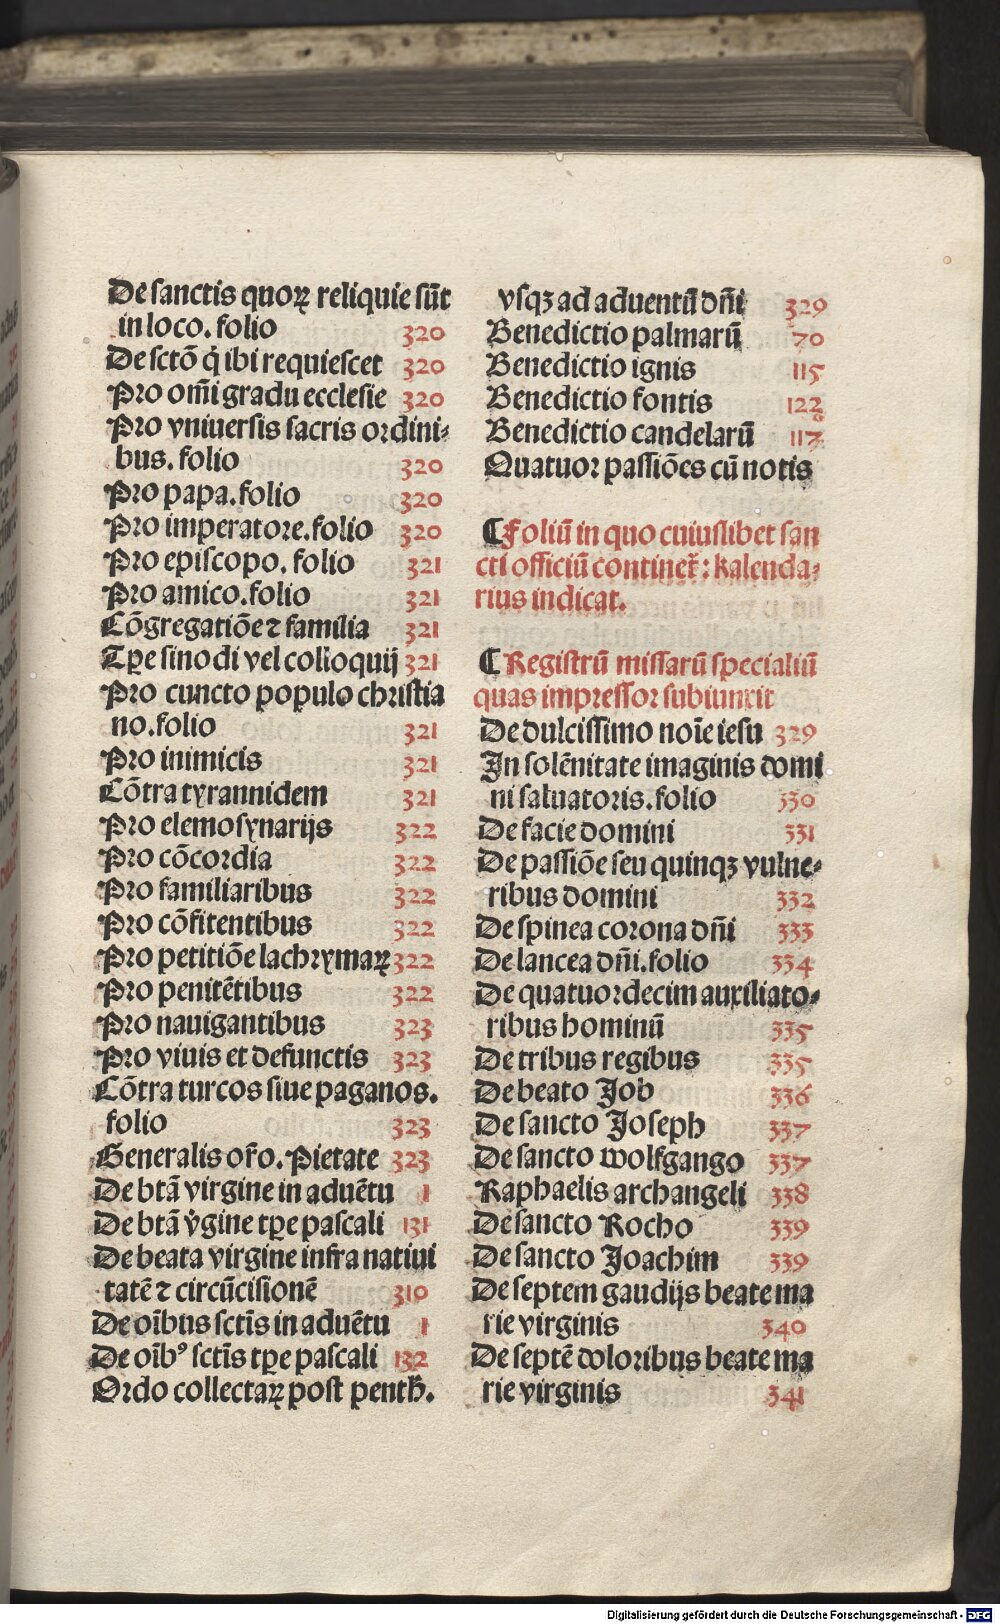 De sanctis quoꝝ reliquie sūt
in loco. folio 320
De sctō q̇ ibi requiescet 320
Pro om̄i gradu ecclesie 320
Pro vniuersis sacris ordini-
bus. folio 320
Pro papa. folio 320
Pro imperatore. folio 320
Pro episcopo. folio 321
Pro amico. folio 321
Cōgregatiōe ⁊ familia 321
Tꝑe sinodi vel colloquij 321
Pro cuncto populo christia
no. folio 321
Pro inimicis 321
Cōtra tyrannidem 321
Pro elemosynarijs 322
Pro cōcordia 322
Pro familiaribus 322
Pro cōfitentibus 322
Pro petitiōe lachrymaꝝ 322
Pro penitētibus 322
Pro nauigantibus 323
Pro viuis et defunctis 323
Cōtra turcos siue paganos.
folio 323
Generalis or̄o. Pietate 323
De btā virgine in aduētu 1
De btā v̇gine tꝑe pascali 131
De beata virgine infra natiui
tatē ⁊ circūcisionē 310
De oībus sctīs in aduētu 1
De oībꝰ sctīs tꝑe pascali 132
Ordo collectaꝝ post penth̄.
vsqꝫ ad aduentū dn̄i 329
Benedictio palmarū 70
Benedictio ignis 115
Benedictio fontis 122
Benedictio candelarū 117
Quatuor passiōes cū notis
¶ Foliū in quo cuiuslibet san
cti officiū continet᷑: kalenda-
rius indicat.
¶ Registrū missarū specialiū
quas impressor subiunxit
De dulcissimo noīe iesu 329
In solēnitate imaginis domi
ni saluatoris. folio 330
De facie domini 331
De passiōe seu quinqꝫ vulne-
ribus domini 332
De spinea corona dn̄i 333
De lancea dn̄i. folio 334
De quatuordecim auxiliato-
ribus hominū 335
De tribus regibus 335
De beato Job 336
De sancto Joseph 337
De sancto wolfgango 337
Raphaelis archangeli 338
De sancto Rocho 339
De sancto Joachim 339
De septem gaudijs beate ma
rie virginis 340
De septē doloribus beate ma
rie virginis 341
Digitalisierung gefördert durch die Deutsche Forschungsgemeinschaft - DFG